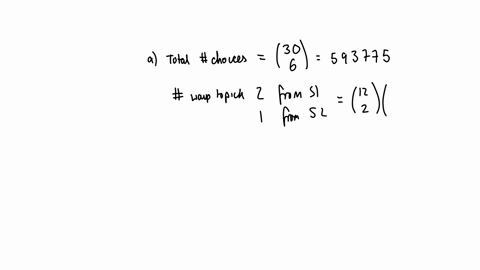 a) Total # choices = (30 6) = 593775
# ways to pick 2 from S1 = (12 2)(
1 from S2